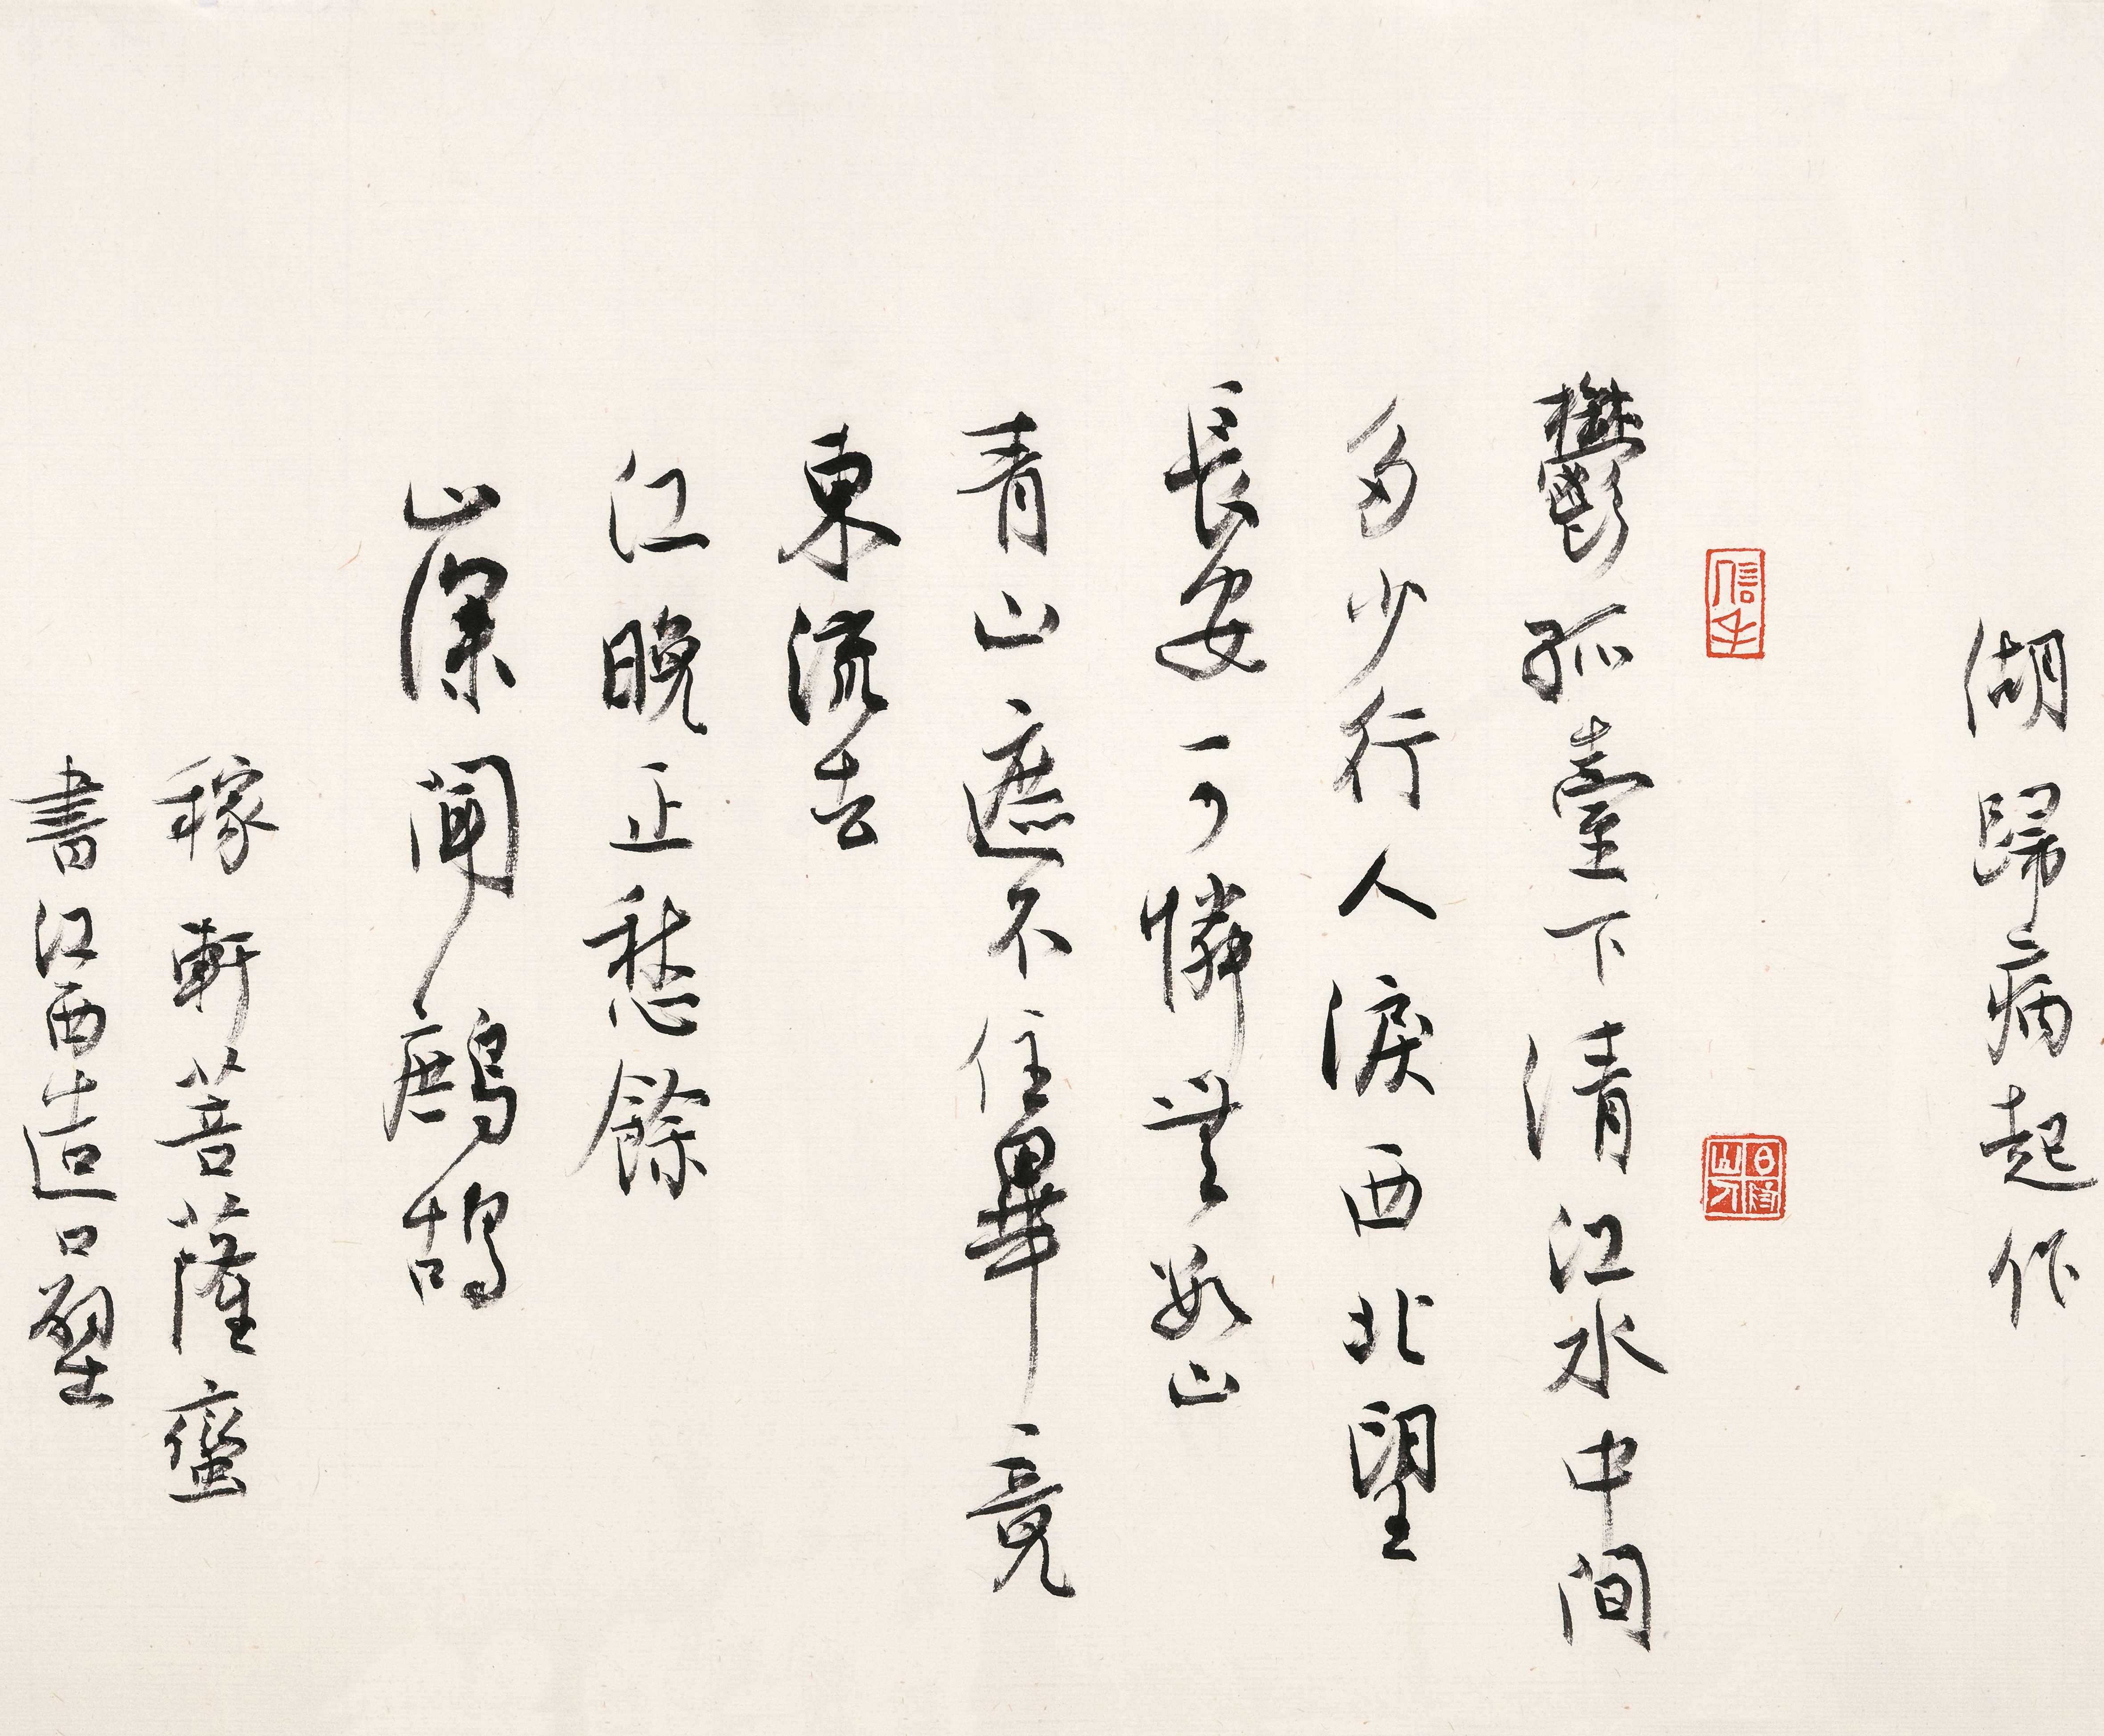 湖歸病起作
信手
鬱孤臺下清江水中間
多少行人淚西北望
長安可憐無數山
青山遮不住畢竟
東流去
江晚正愁餘
山深聞鷓鴣
稼軒菩薩蠻
書江西造口壁